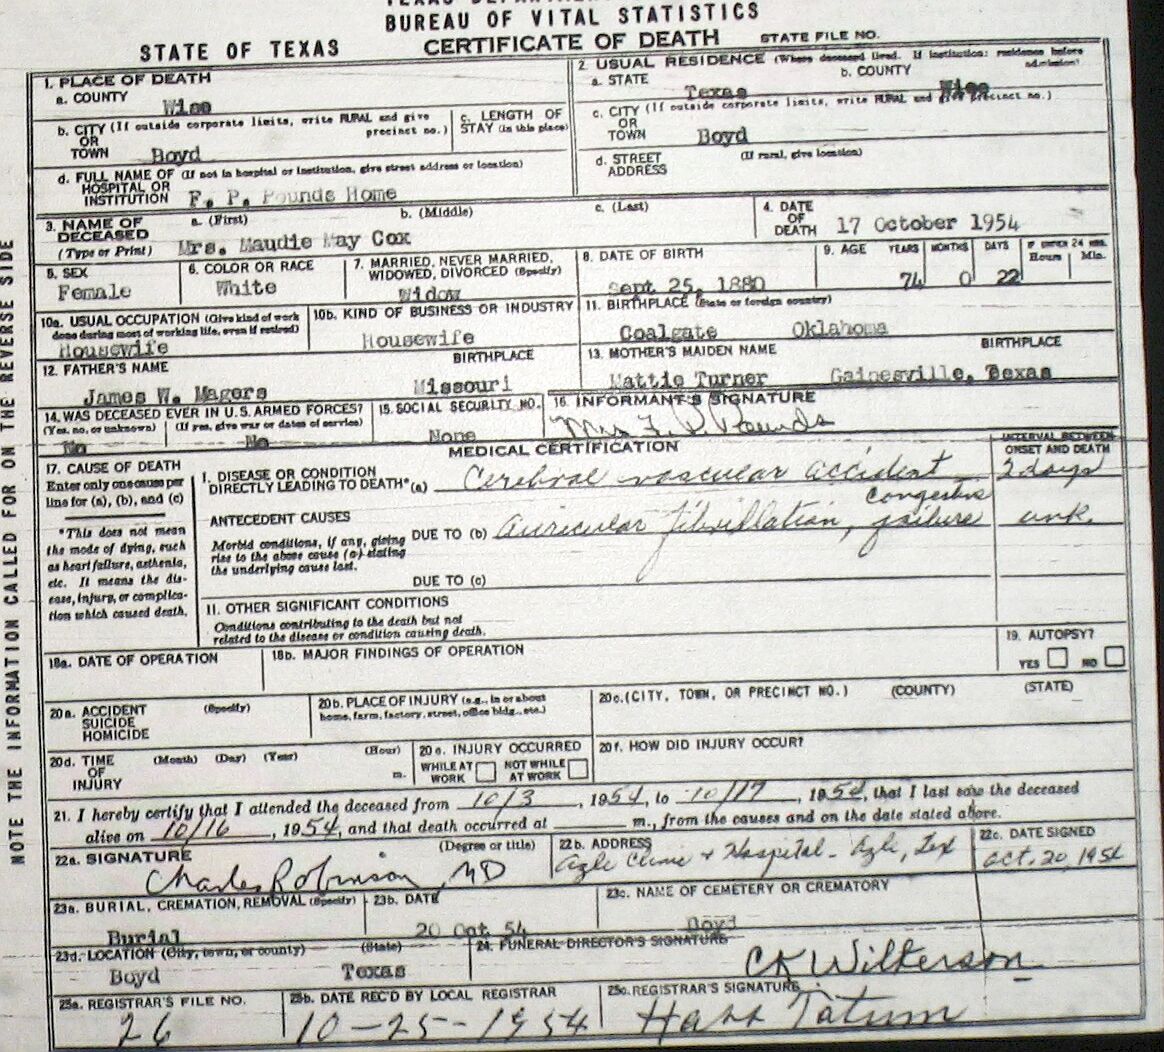 BUREAU OF VITAL STATISTICS
STATE OF TEXAS CERTIFICATE OF DEATH STATE FILE NO.
1. PLACE OF DEATH
a. COUNTY Wise
2. USUAL RESIDENCE (Where deceased lived. If institution: residence before admission)
a. STATE Texas b. COUNTY Wise
b. CITY (If outside corporate limits, write RURAL and give precinct no.)
OR
TOWN Boyd
c. LENGTH OF
STAY (in this place)
c. CITY (If outside corporate limits, write RURAL and give precinct no.)
OR
TOWN Boyd
d. FULL NAME OF (If not in hospital or institution, give street address or location)
HOSPITAL OR
INSTITUTION F. P. Pounds Home
d. STREET (If rural, give location)
ADDRESS
3. NAME OF a. (First) b. (Middle) c. (Last)
DECEASED
(Type or Print) Mrs. Maudie May Cox
4. DATE
OF
DEATH 17 October 1954
5. SEX
Female
6. COLOR OR RACE
White
7. MARRIED, NEVER MARRIED,
WIDOWED, DIVORCED (Specify)
Widow
8. DATE OF BIRTH
Sept 25, 1880
9. AGE YEARS MONTHS DAYS IF UNDER 24 HRS.
Hours Min.
74 0 22
10a. USUAL OCCUPATION (Give kind of work
done during most of working life, even if retired)
Housewife
10b. KIND OF BUSINESS OR INDUSTRY
Housewife
11. BIRTHPLACE (State or foreign country)
Coalgate Oklahoma
12. FATHER'S NAME BIRTHPLACE
James W. Magers Missouri
13. MOTHER'S MAIDEN NAME BIRTHPLACE
Mattie Turner Gainesville, Texas
14. WAS DECEASED EVER IN U.S. ARMED FORCES?
(Yes, no, or unknown) (If yes, give war or dates of service)
No No
15. SOCIAL SECURITY NO.
None
16. INFORMANT'S SIGNATURE
Mrs F. P. Pounds
MEDICAL CERTIFICATION
INTERVAL BETWEEN
ONSET AND DEATH
17. CAUSE OF DEATH
Enter only one cause per
line for (a), (b), and (c)
*This does not mean
the mode of dying, such
as heart failure, asthenia,
etc. It means the dis-
ease, injury, or complica-
tion which caused death.
I. DISEASE OR CONDITION
DIRECTLY LEADING TO DEATH* (a) Cerebral vascular accident 2 days
ANTECEDENT CAUSES
Morbid conditions, if any, giving
rise to the above cause (a) stating
the underlying cause last.
DUE TO (b) auricular fibrillation, Congestive failure unk.
DUE TO (c)
II. OTHER SIGNIFICANT CONDITIONS
Conditions contributing to the death but not
related to the disease or condition causing death.
18a. DATE OF OPERATION
18b. MAJOR FINDINGS OF OPERATION
19. AUTOPSY?
YES NO
20a. ACCIDENT (Specify)
SUICIDE
HOMICIDE
20b. PLACE OF INJURY (e.g., in or about
home, farm, factory, street, office bldg., etc.)
20c. (CITY, TOWN, OR PRECINCT NO.) (COUNTY) (STATE)
20d. TIME (Month) (Day) (Year) (Hour)
OF
INJURY m.
20e. INJURY OCCURRED
WHILE AT
WORK
NOT WHILE
AT WORK
20f. HOW DID INJURY OCCUR?
21. I hereby certify that I attended the deceased from 10/3, 1954, to 10/17, 1954, that I last saw the deceased
alive on 10/16, 1954, and that death occurred at m., from the causes and on the date stated above.
22a. SIGNATURE (Degree or title)
Charles Robinson, MD
22b. ADDRESS
Azle Clinic + Hospital - Azle, Tex
22c. DATE SIGNED
Oct. 20, 1954
23a. BURIAL, CREMATION, REMOVAL (Specify)
Burial
23b. DATE
20 Oct 54
23c. NAME OF CEMETERY OR CREMATORY
Boyd
23d. LOCATION (City, town, or county) (State)
Boyd Texas
24. FUNERAL DIRECTOR'S SIGNATURE
CK Wilkerson
25a. REGISTRAR'S FILE NO.
26
25b. DATE REC'D BY LOCAL REGISTRAR
10-25-1954
25c. REGISTRAR'S SIGNATURE
Tatum
NOTE THE INFORMATION CALLED FOR ON THE REVERSE SIDE